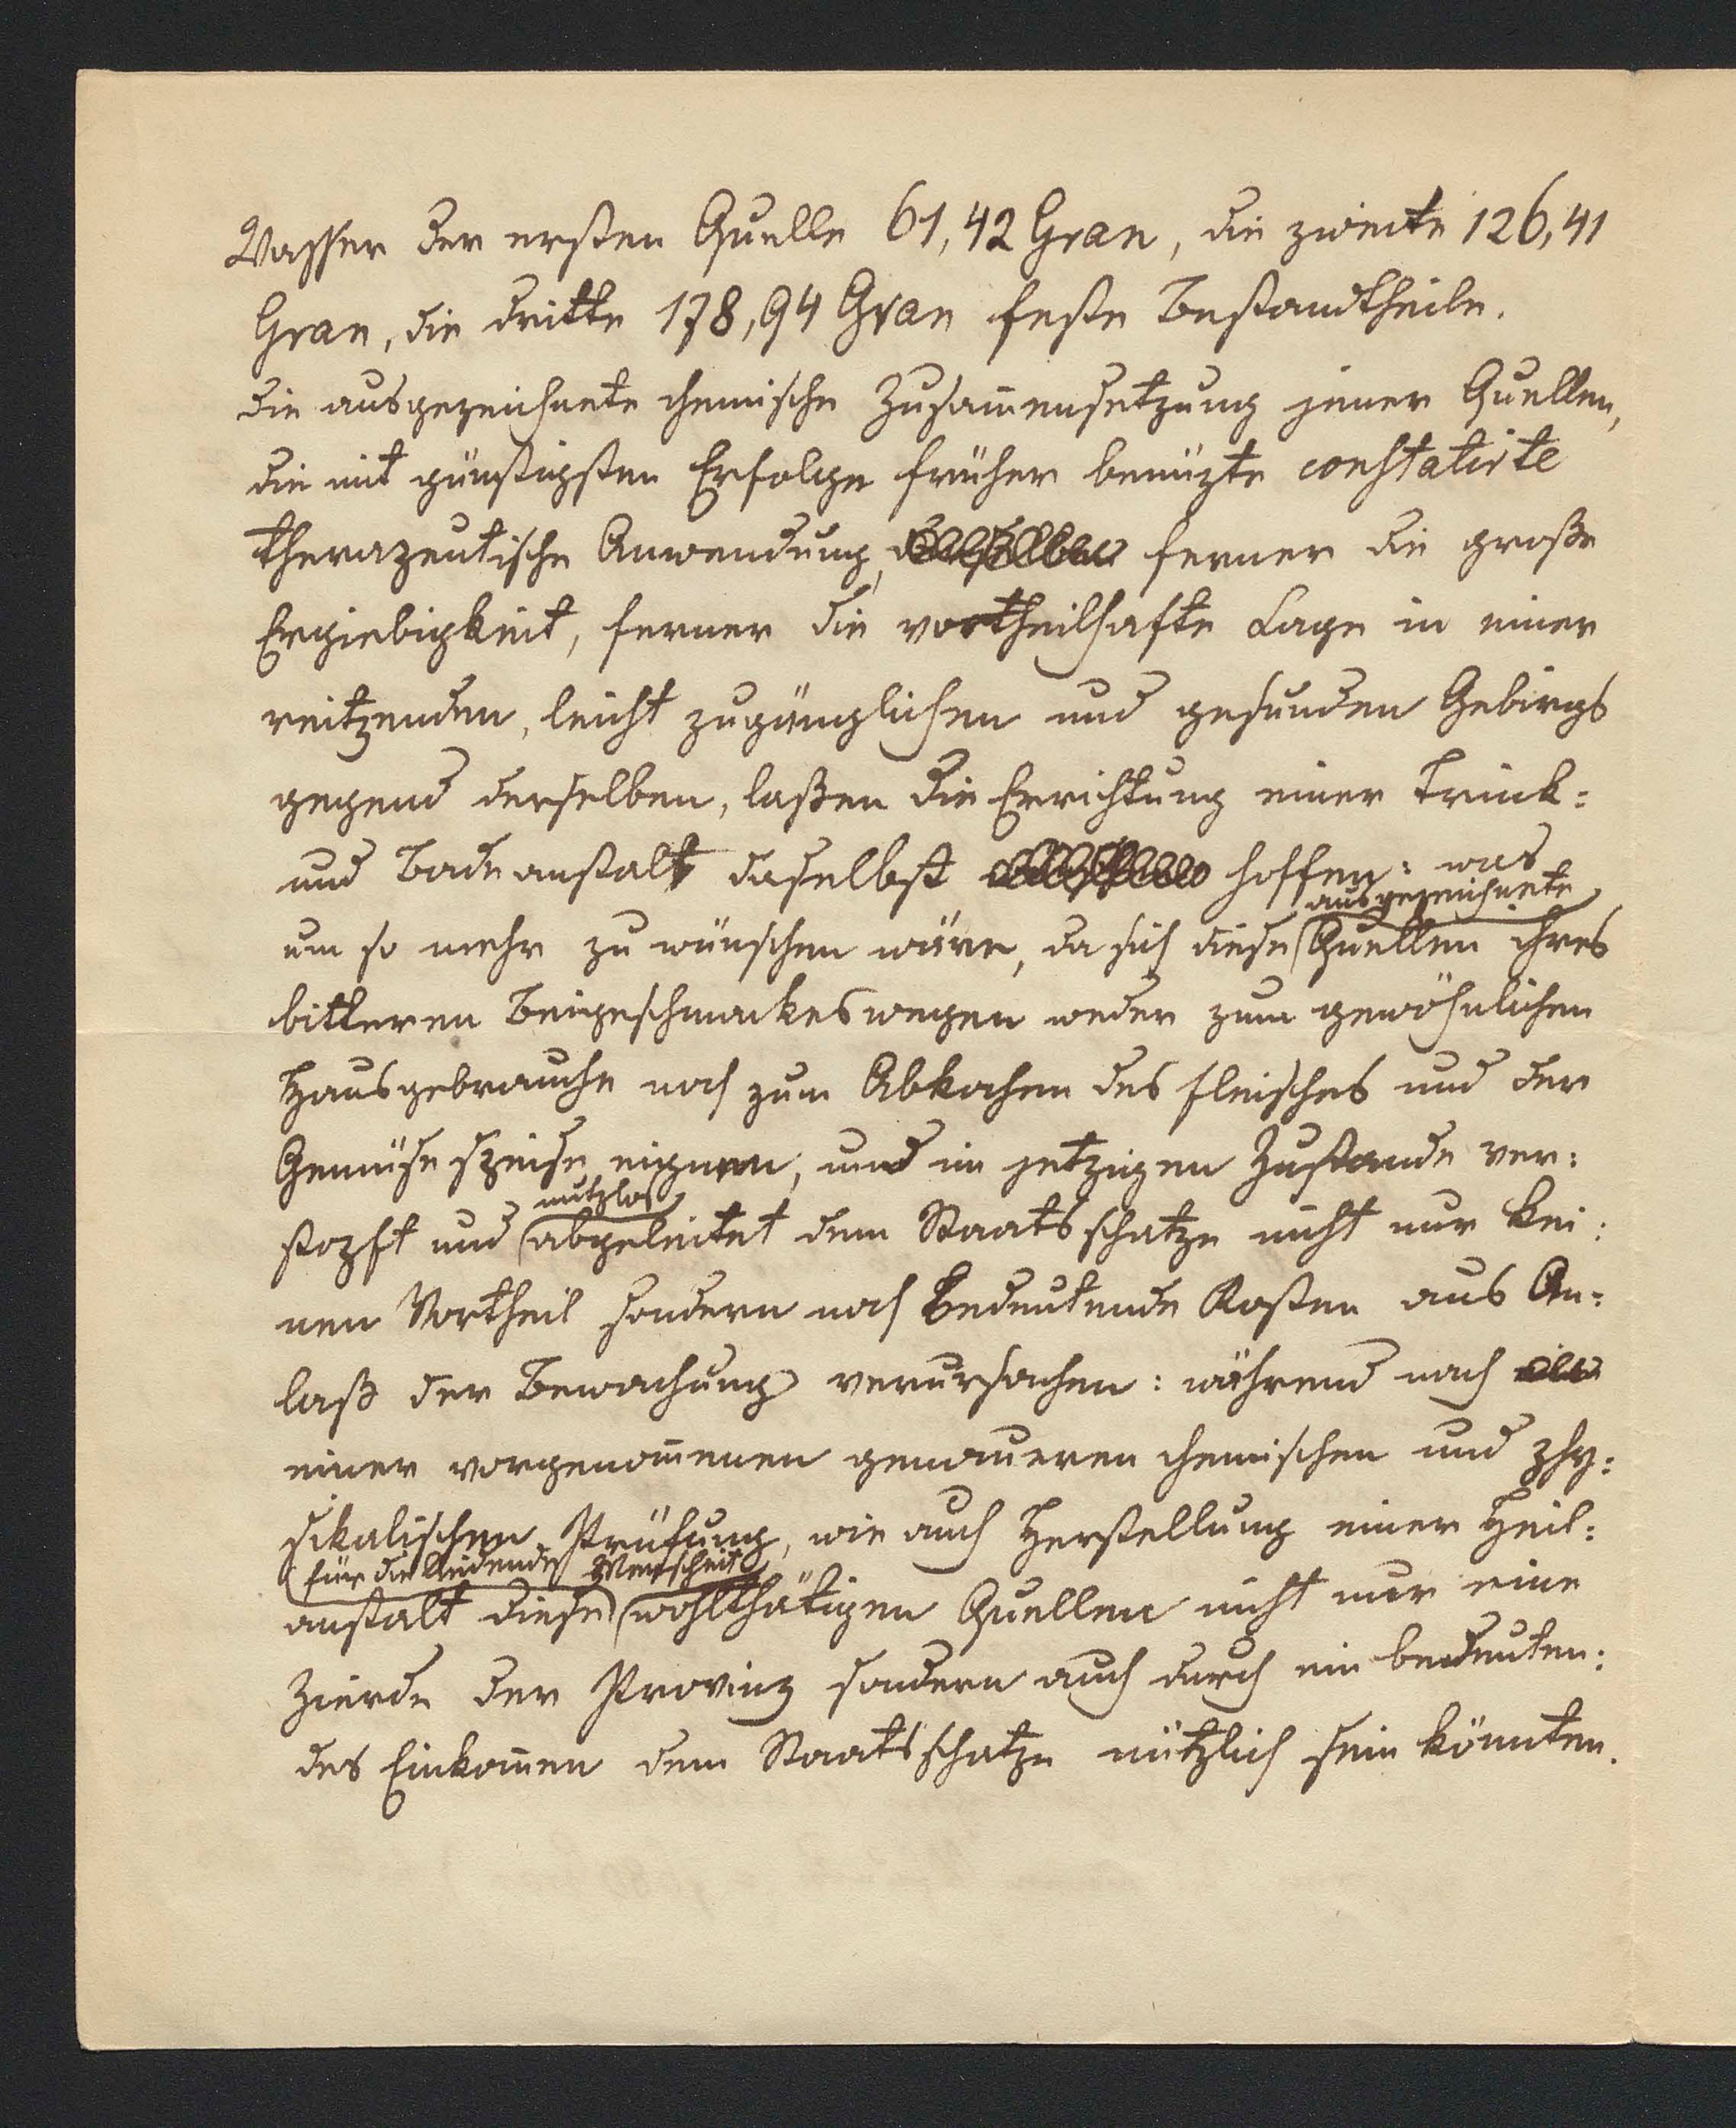 Wasser der ersten Quelle 61,42 Gran, die zweite 126,41
Gran, die dritte 178,94 Gran feste Bestandtheile.
Die ausgezeichnete chemische Zusam̄ensetzung jener Quellen,
die mit günstigsten Erfolge früher benüzte constatirte
therapeutische Anwendung, ferner die große
Ergiebigkeit, ferner die vortheilhafte Lage in einer
reitzenden, leicht zugänglichen und gesunden Gebirgs
gegend derselben, laßen die Errichtung einer Trink-
und Badeanstalt daselbst hoffen: was
ausgezeichnete
um so mehr zu wünschen wäre, da sich diese Quellen ihres
bitteren Beigeschmackes wegen weder zum gewöhnlichen
Hausgebrauche noch zum Abkochen des Fleisches und der
Gemüse speise eignen, und im jetzigen Zustande ver:
nutzlos
stopft und abgeleitet dem Staatsschatze nicht nur kei:
nen Vortheil sondern noch bedeutende Kosten aus An:
laß der Bewachung verursachen: während nach
einer vorgenom̄enen genaueren chemischen und phy:
sikalischen Prüfung, wie auch Herstellung einer Heil:
für die leidende Menscheit
anstalt diese wohlthätigen Quellen nicht nur eine
Zierde der Provinz sondern auch durch ein bedeuten:
des Einkom̄en dem Staatsschatze nützlich sein könnten.